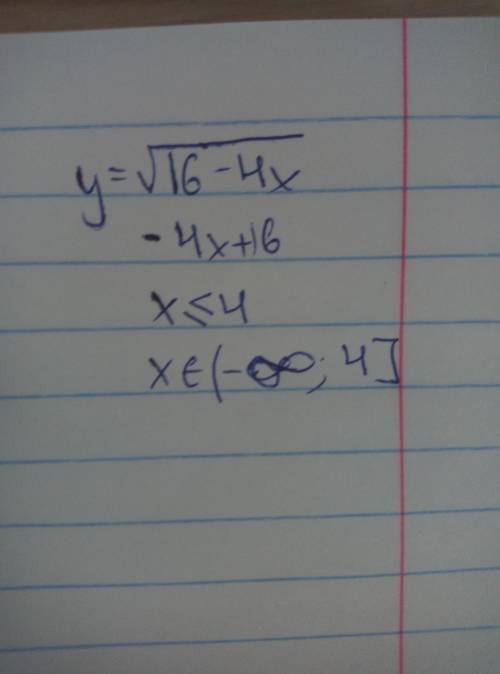 y=√16-4x
-4x+16
x≤4
x∈(-∞; 4]